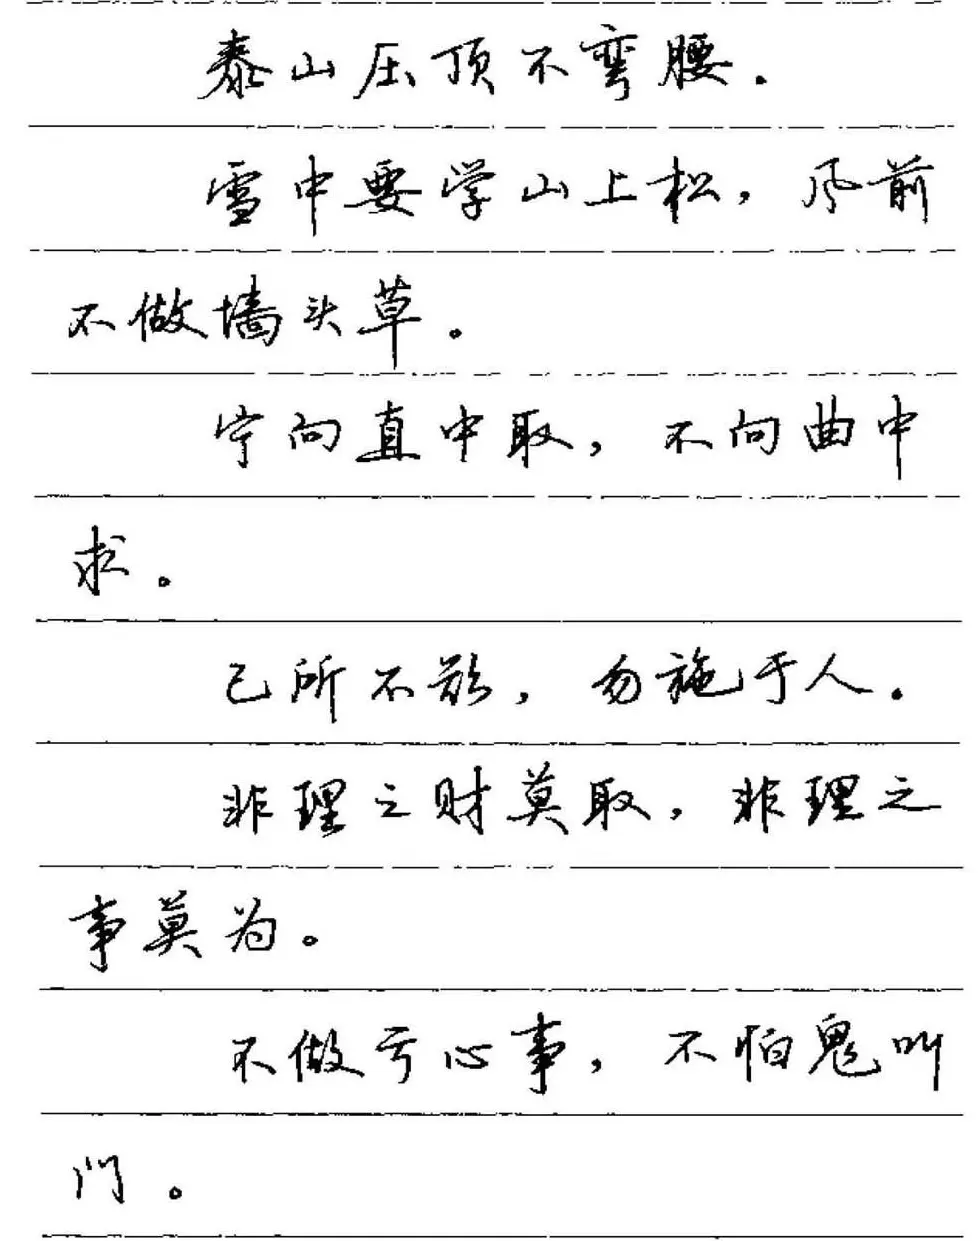 泰山压顶不弯腰。
雪中要学山上松，风前
不做墙头草。
宁向直中取，不向曲中
求。
己所不欲，勿施于人。
非理之财莫取，非理之
事莫为。
不做亏心事，不怕鬼叫
门。